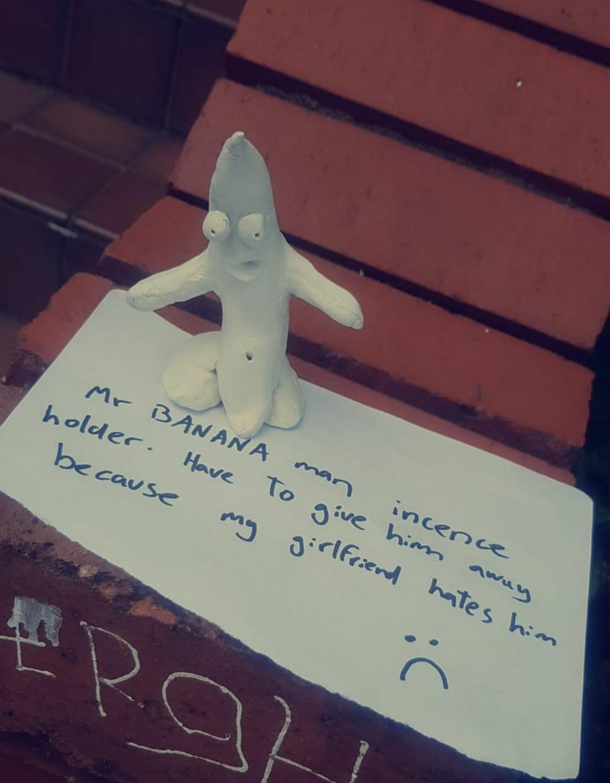 Mr BANANA man incence
holder. Have to give him away
because my girlfriend hates him